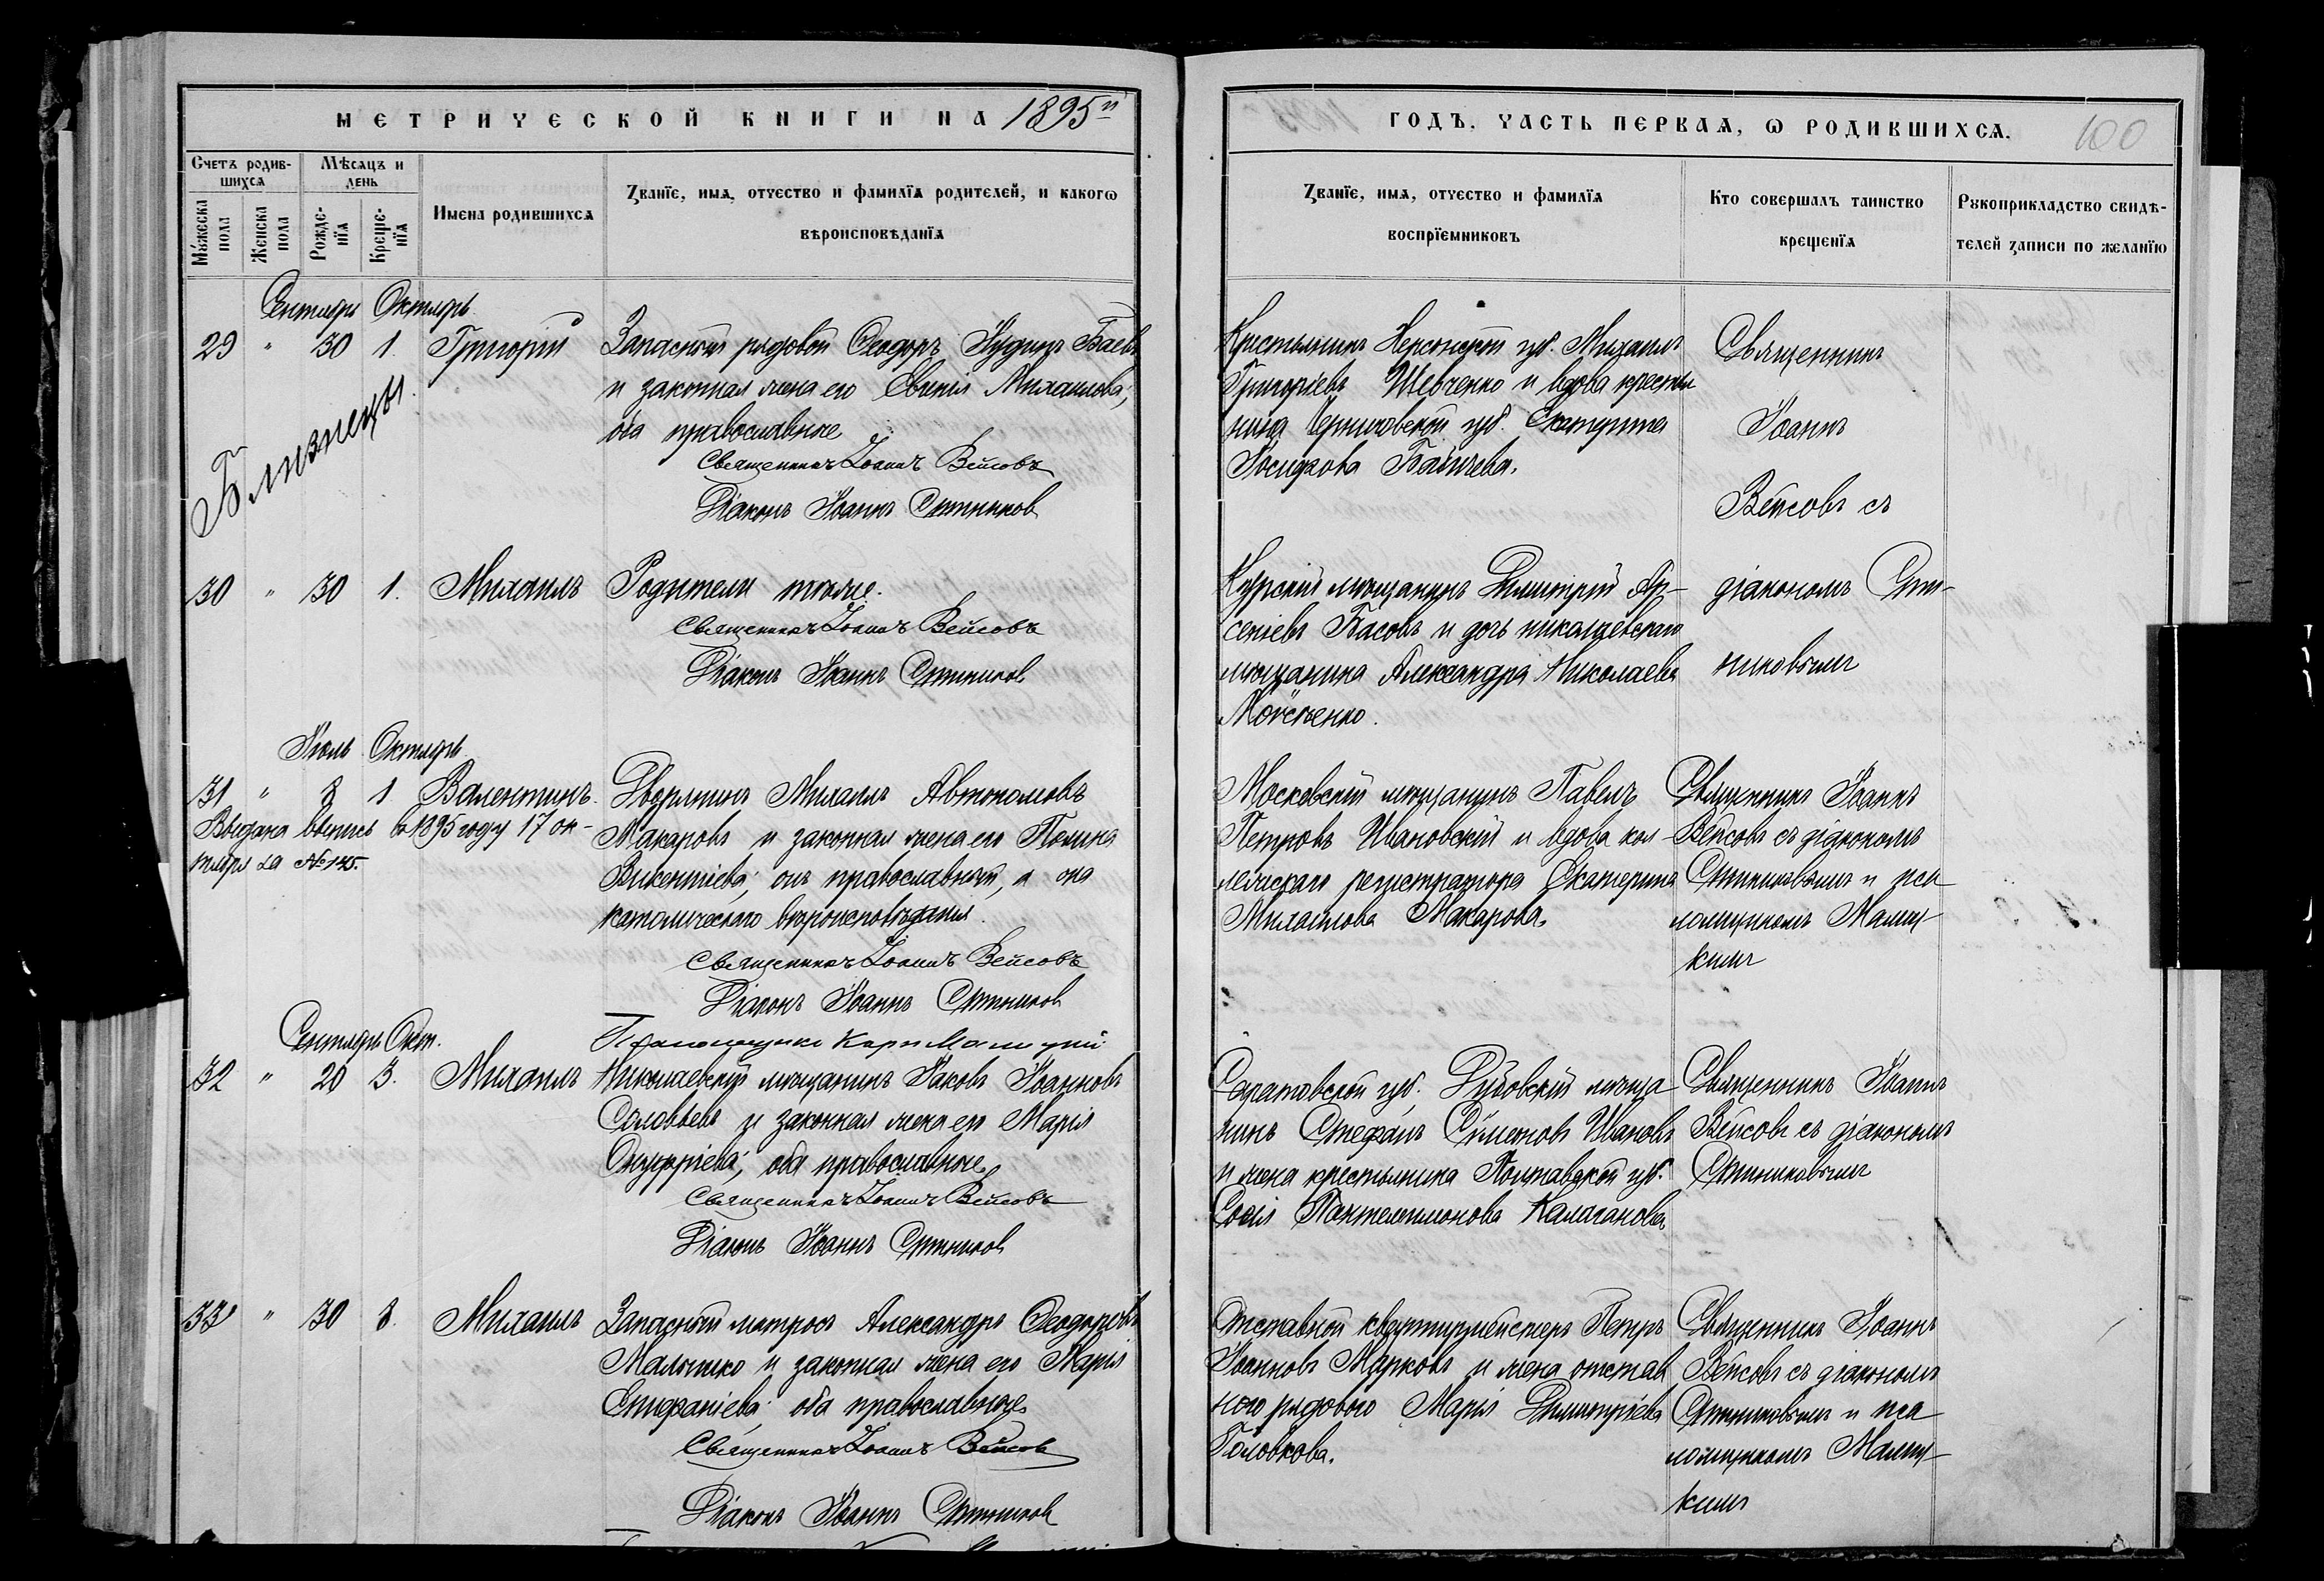 МЕТРИЧЕСКОЙ КНИГИ НА 1895й
ГОДЪ, ЧАСТЬ ПЕРВАЯ, Ѡ РОДИВШИХСЯ.
100
Счетъ родив-
шихся
Мѣсяцъ и
день
Мꙋжеска
пола
Женска
пола
Рожде-
нїя
Креще-
нїя
Имена родившихся
Званїе, имя, отчество и фамилїя родителей, и какогѡ
вѣроисповѣданїя
Званїе, имя, отчество и фамилїя
воспрїемниковъ
Кто совершалъ таинство
крещенїя
Рꙋкоприкладство свидѣ-
телей записи по желанїю
Сентябрь Октябрь
29 " 30 1. Григорій
Близнецы.
Запасный рядовой Ѳеодоръ Баевъ
и законная жена его Михаилова;
оба православные
Священникъ Іоаннъ Вейсовъ
Діаконъ Іоаннъ Ситников
Крестьянинъ Херсонской губ. Михаилъ
Григоріевъ Шевченко и вдова крестья
нина Черниговской губ. Екатерина
Іосифова
Священникъ
Іоаннъ
Вейсовъ съ
30 " 30 1. Михаилъ
Родители тѣже.
Священникъ Іоаннъ Вейсовъ
Діаконъ Іоаннъ Ситников
Курскій мѣщанинъ Димитрій Ар-
сеніевъ Басовъ и дочь николаевскаго
мѣщанина Александра Николаева
Мойсѣенко.
діакономъ Сит-
никовымъ
Іюль Октябрь
31 " 8 1 Валентинъ.
Выдана выпись въ 1895 году 17 ок-
тября за № 145.
Дворянинъ Михаилъ Автономовъ
Макаровъ и законная жена его Полина
Викентіева; онъ православный, а она
католическаго вѣроисповѣданія.
Священникъ Іоаннъ Вейсовъ
Діаконъ Іоаннъ Ситников
Псаломщикъ
Московскій мѣщанинъ Павелъ
Петровъ Ивановскій и вдова кол-
лежскаго регистратора Екатерина
Михаилова Макарова.
Священникъ Іоаннъ
Вейсовъ съ діакономъ
Ситниковымъ и пса
ломщикомъ Малиц-
кимъ
Сентябрь Окт.
32 " 20 3. Михаилъ
Николаевскій мѣщанинъ Іаковъ Іоанновъ
Соловьевъ и законная жена его Марія
Онуфріева; оба православные
Священникъ Іоаннъ Вейсовъ
Діаконъ Іоаннъ Ситников
Саратовской губ. Дубовскій мѣща
нинъ Стефанъ Симеоновъ Ивановъ
и жена крестьянина Полтавской губ.
Софія Пантелеимонова
Священникъ Іоаннъ
Вейсовъ съ діакономъ
Ситниковымъ
33 " 30 8. Михаилъ
Запасный матросъ Александръ Ѳеодоровъ
и законная жена его Марія
Епифаніева; оба православные
Священникъ Іоаннъ Вейсов
Діаконъ Іоаннъ Ситников
Отставной квартирмейстеръ Петръ
Іоанновъ Марковъ и жена отстав
ного рядового Марія Димитріева
Головкова.
Священникъ Іоаннъ
Вейсовъ съ діакономъ
Ситниковымъ и пса
ломщикомъ Малиц-
кимъ